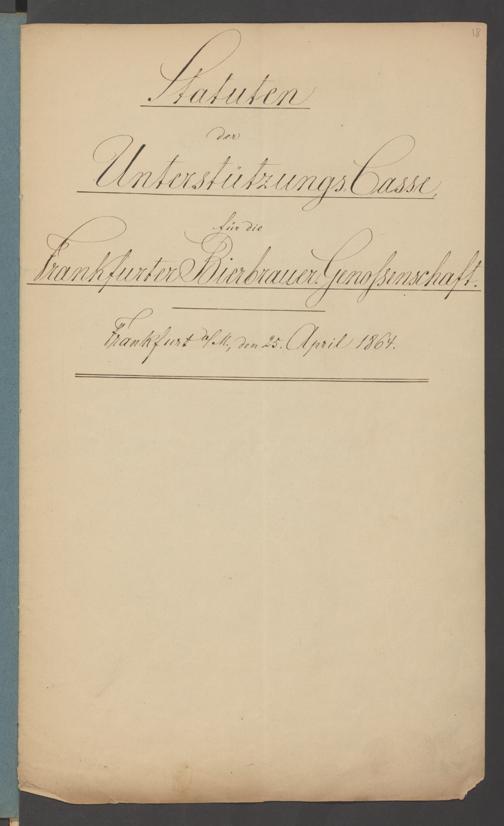 18
Statuten
der
Unterstützungs-Casse
für die
Frankfurter Bierbrauer-Genossenschaft.
Frankfurt a/M., den 25. April 1864.